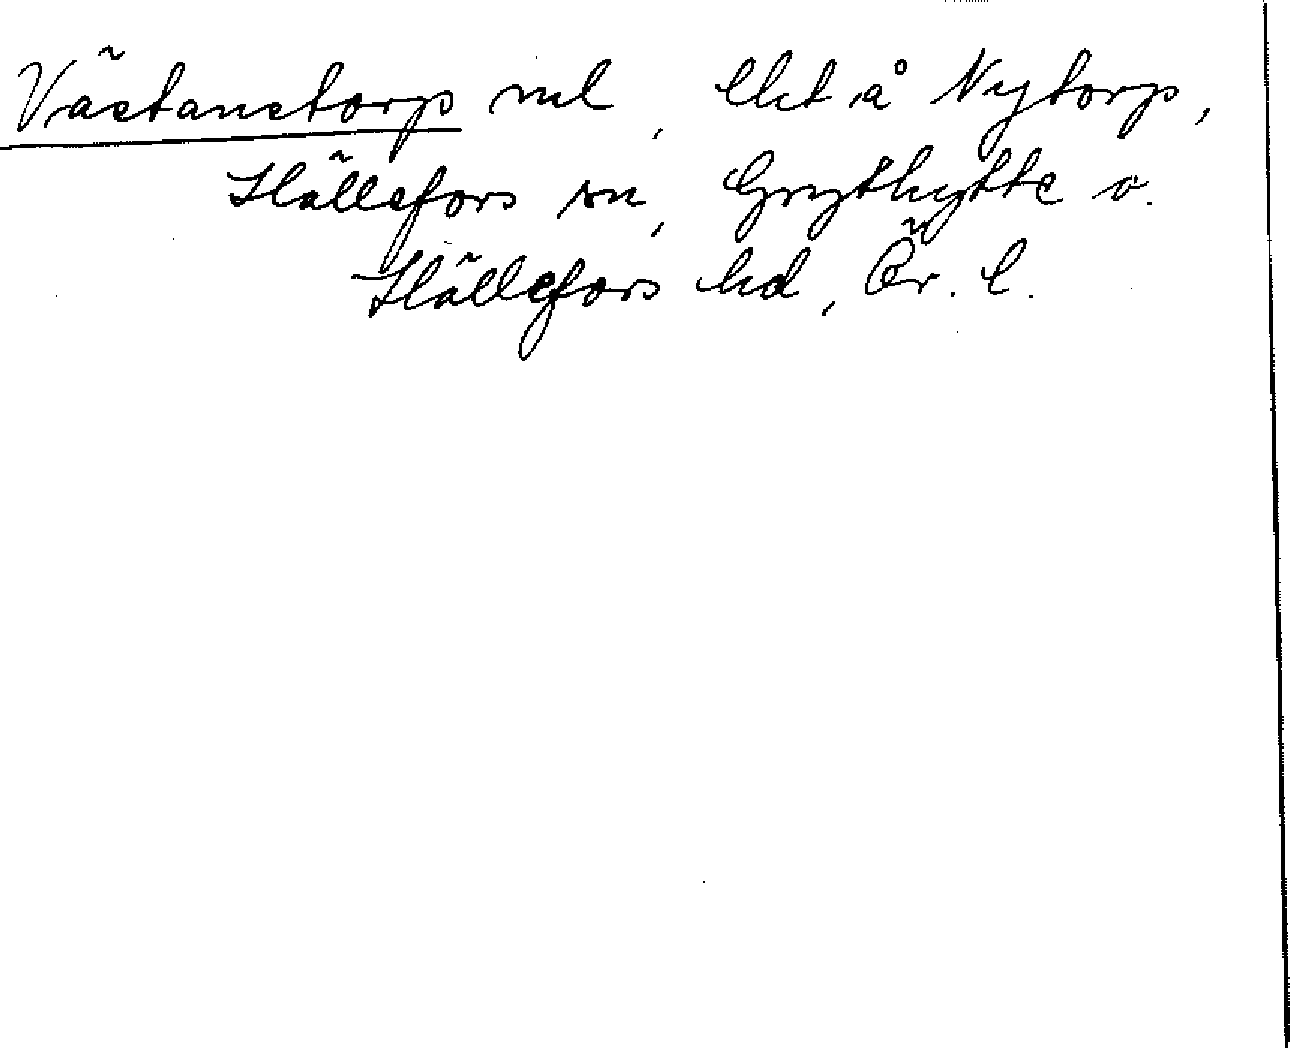 Västanstorp ml, lht å Nytorp,
Hällefors sn, Grythytte o.
Hällefors hd, Ör. l.